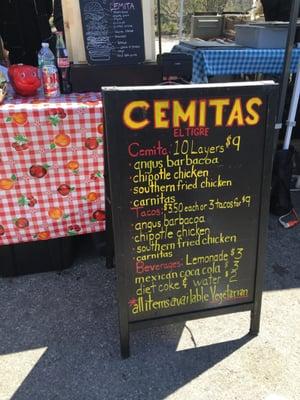 CEMITAS
CEMITAS
EL TIGRE
Cemita: 10 Layers $9
angus barbacoa
chipotle chicken
southern fried chicken
carnitas
Tacos: $3.50 each or 3 tacos for $9
angus barbacoa
chipotle chicken
southern fried chicken
carnitas
Beverages: Lemonade
mexican coca cola
diet coke & water
*all items available Vegetarian